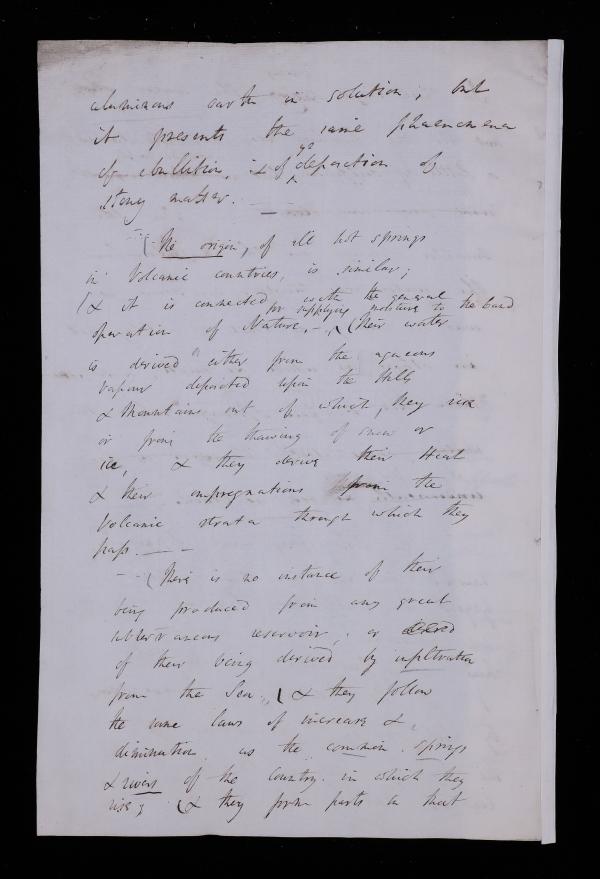 aluminous earth in solution; but
it presents the same phaenomena
of ebullition, & of ye deposition of
stony matter. — —
— (The origin, of all hot springs
in Volcanic countries, is similar;
(& it is connected with the general
for supplying moisture to the land
operation of Nature, — (their water
is derived either from the aqueous
vapour deposited upon the Hills
& Mountains out of which they rise
or from the thawing of snow or
ice, & they derive their Heat
& their impregnations from the
Volcanic strata through which they
pass. — —
— (There is no instance of their
being produced from any great
subterraneous reservoir, or
of their being derived by infiltration
from the Sea. (& they follow
the same laws of increase &
diminution as the common springs
& rivers of the Country in which they
rise; (& they form parts in that